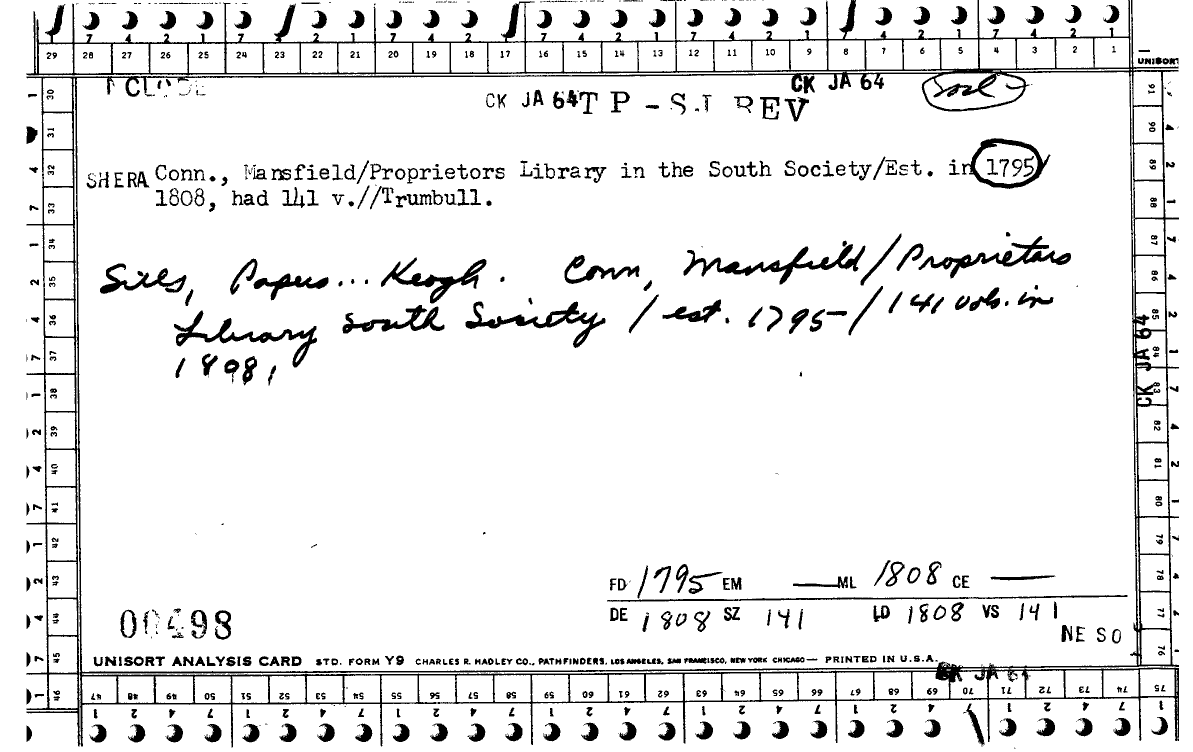 29 28 27 26 25 24 23 22 21 20 19 18 17 16 15 14 13 12 11 10 9 8 7 6 5 4 3 2 1
UNISORT
CK JA 64 TP - SJ REV CK JA 64
SHERA Conn., Mansfield/Proprietors Library in the South Society/Est. in 1795/
1808, had 141 v.//Trumbull.
Papers... Keogh. Conn, Mansfield/Proprietors
Library South Society / est. 1795 / 141 vols. in
1808,
CK JA 64
FD 1795 EM — ML 1808 CE —
DE 1808 SZ 141 LD 1808 VS 141
NE SO
00498
UNISORT ANALYSIS CARD STD. FORM Y9 CHARLES R. HADLEY CO., PATHFINDERS, LOS ANGELES, SAN FRANCISCO, NEW YORK CHICAGO — PRINTED IN U.S.A.
CK JA 64
47 48 49 50 51 52 53 54 55 56 57 58 59 60 61 62 63 64 65 66 67 68 69 70 71 72 73 74 75